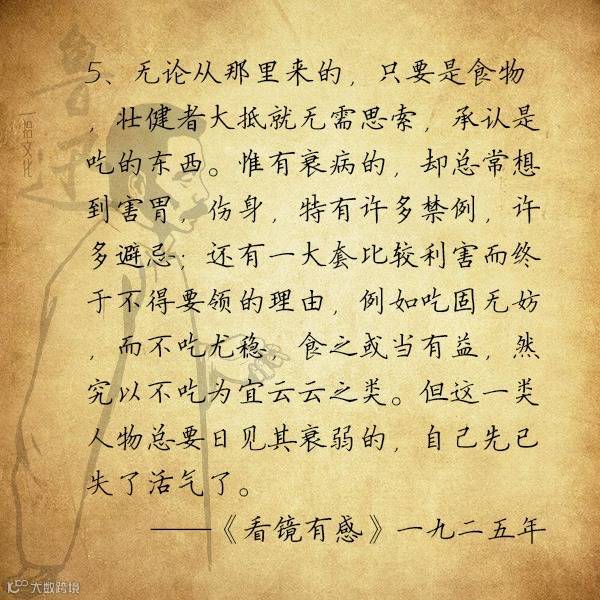 5、无论从那里来的，只要是食物
，壮健者大抵就无需思索，承认是
吃的东西。惟有衰病的，却总常想
到害胃，伤身，特有许多禁例，许
多避忌；还有一大套比较利害而终
于不得要领的理由，例如吃固无妨
，而不吃尤稳，食之或当有益，然
究以不吃为宜云云之类。但这一类
人物总要日见其衰弱的，自己先已
失了活气了。
——《看镜有感》一九二五年
鲁迅
拾文化
大数跨境